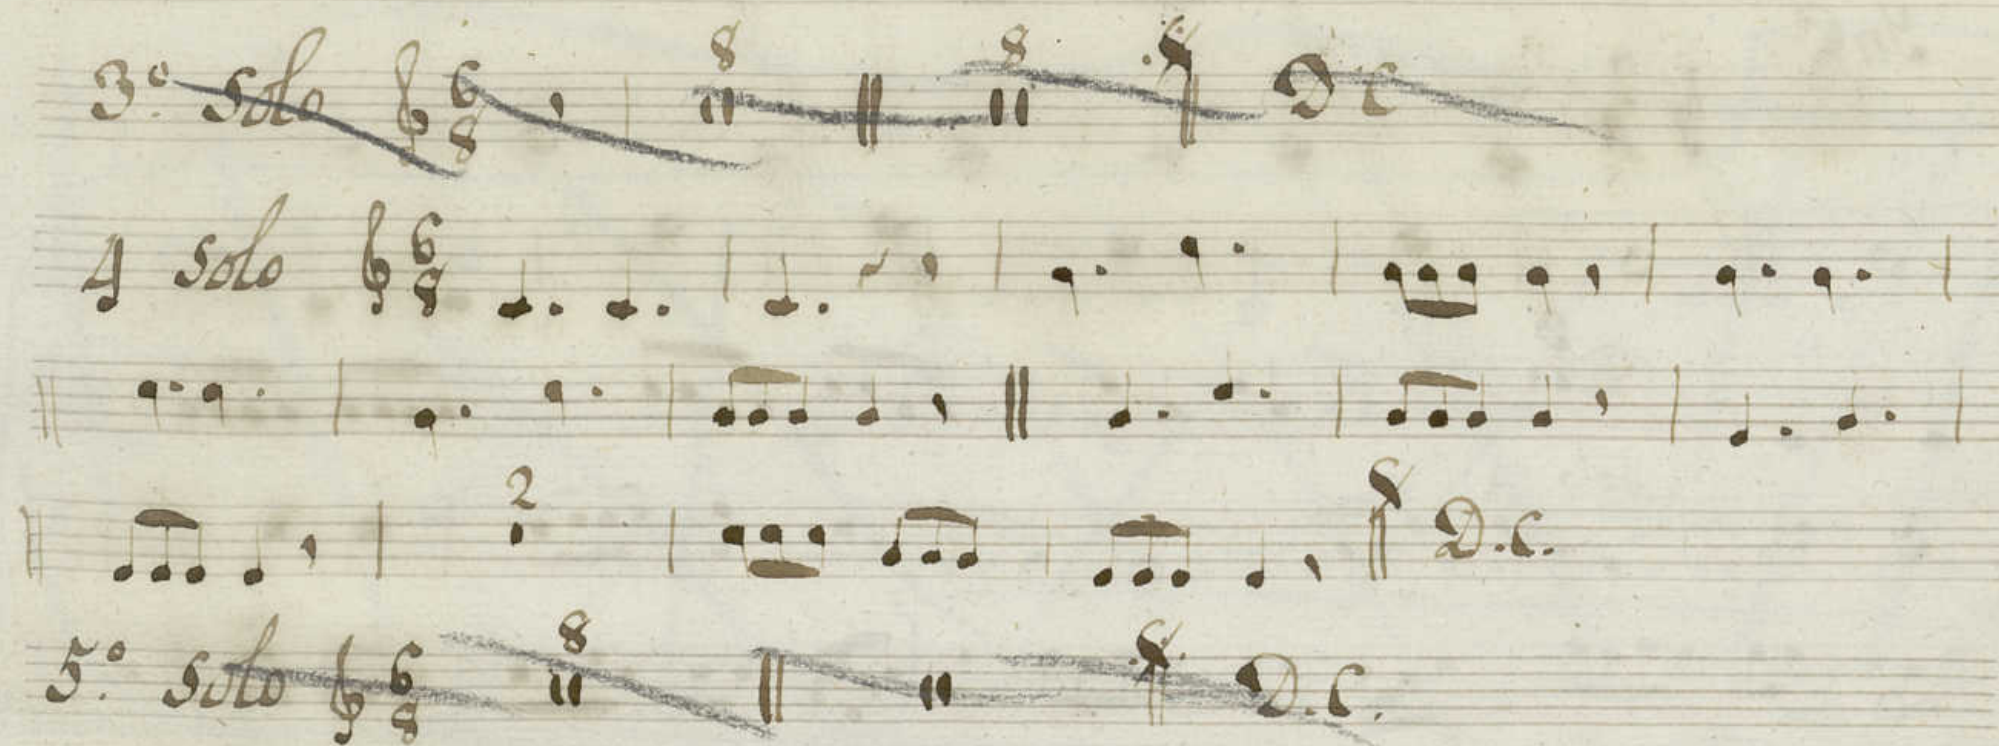 3º. Solo 6 8 8 8 D C
4 Solo 6 8
2 D.C.
5º. Solo 6 8 8 D.C.